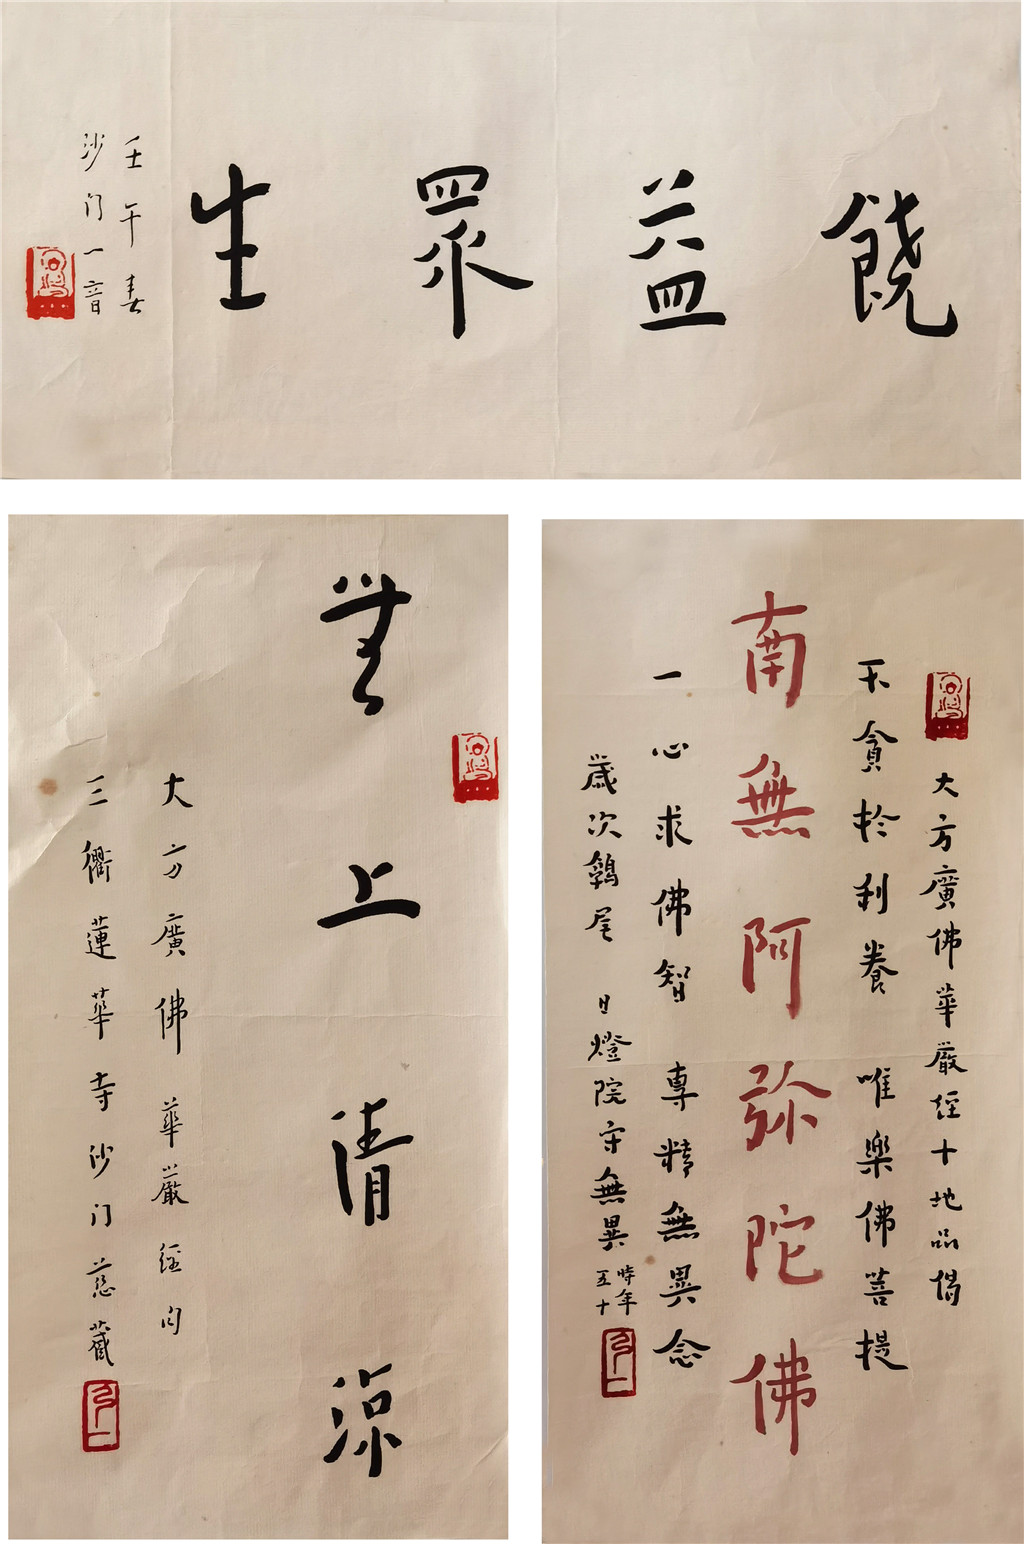 饒益眾生
壬午春
沙门一音
無上清涼
大方廣佛華嚴經句
三衢蓮華寺沙门慈藏
大方廣佛華嚴經十地品偈
不貪於利養 唯樂佛菩提
南無阿弥陀佛
一心求佛智 專精無異念
歲次鶉尾 日燈院守無異
時年
五十